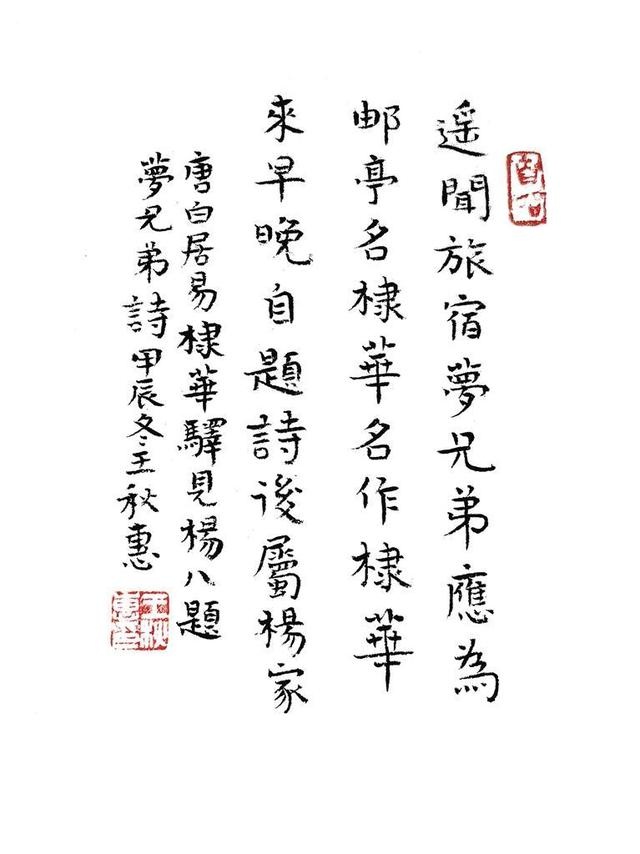 遥聞旅宿夢兄弟應為
邮亭名棣華名作棣華
來早晚自題詩後屬楊家
唐白居易棣華驛見楊八題
夢兄弟詩甲辰冬王秋惠